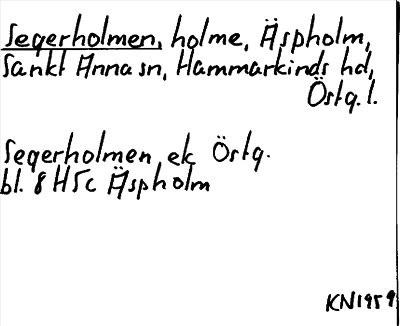 Segerholmen, holme, Äspholm,
Sankt Anna sn, Hammarkinds hd,
Östg. l.
Segerholmen ek Östg.
bl. 8 H 5c Äspholm
KN1959